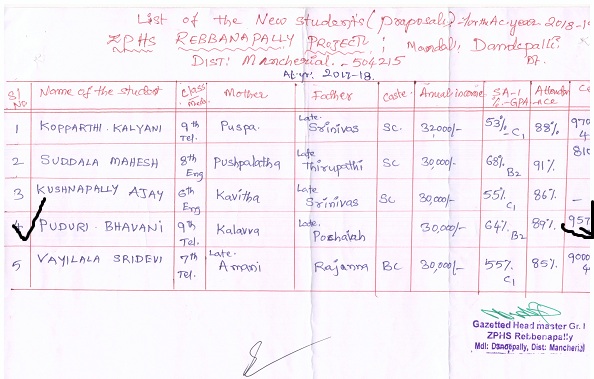 List of the New students (proposals) - for the Ac. year 2018-19
ZPHS REBBANAPALLY PROJECT; Mandal: Dandepalli.
DIST: Mancherial. - 504215
2017-18.
Sl No Name of the student Class Med. Mother Father Caste Annual income SA-I %-GPA Attendance
1 KOPPARTHI. KALYANI 9th Tel. Puspa. Late Srinivas SC. 32000/- 53% C1 88% 970
2 SUDDALA MAHESH 8th Eng Pushpalatha Late Thirupathi SC 30,000/- 68% B2 91% 810
3 KUSHNAPALLY AJAY 6th Eng Kavitha Late Srinivas SC 30,000/- 55% C1 86% -
4 PUDURI. BHAVANI 9th Tel. Kalavva Late. Poshavah 30,000/- 64% B2 89% 957
5 VAYILALA SRIDEVI 7th Tel. Late. Amani Rajanna BC 30,000/- 55% C1 85% 9000
Gazetted Head master Gr. I
ZPHS Rebbenapally
Mdl: Dandepally, Dist: Mancherial